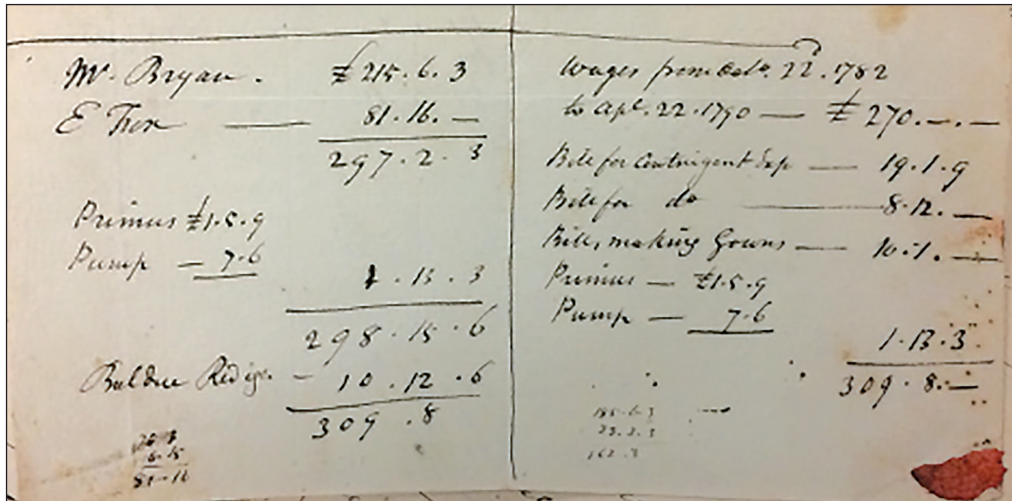 Mr. Bryan. £215.6.3
E Fox — 81.16.—
297.2.3
Primus £1.5.9
Pump — 7.6
1.13.3
298.15.6
Bal due — 10.12.6
309.8
81-16
Wages from Octo. 22.1782
to Apl. 22.1790 — £270.—.—
Bill for Contingent Exp — 19.1.9
Bill for do — 8.12.—
Bill, making Gowns — 10.1.—
Primus — £1.5.9
Pump — 7.6
1.13.3
309.8.—
185.6.3
23.3.3
162.3